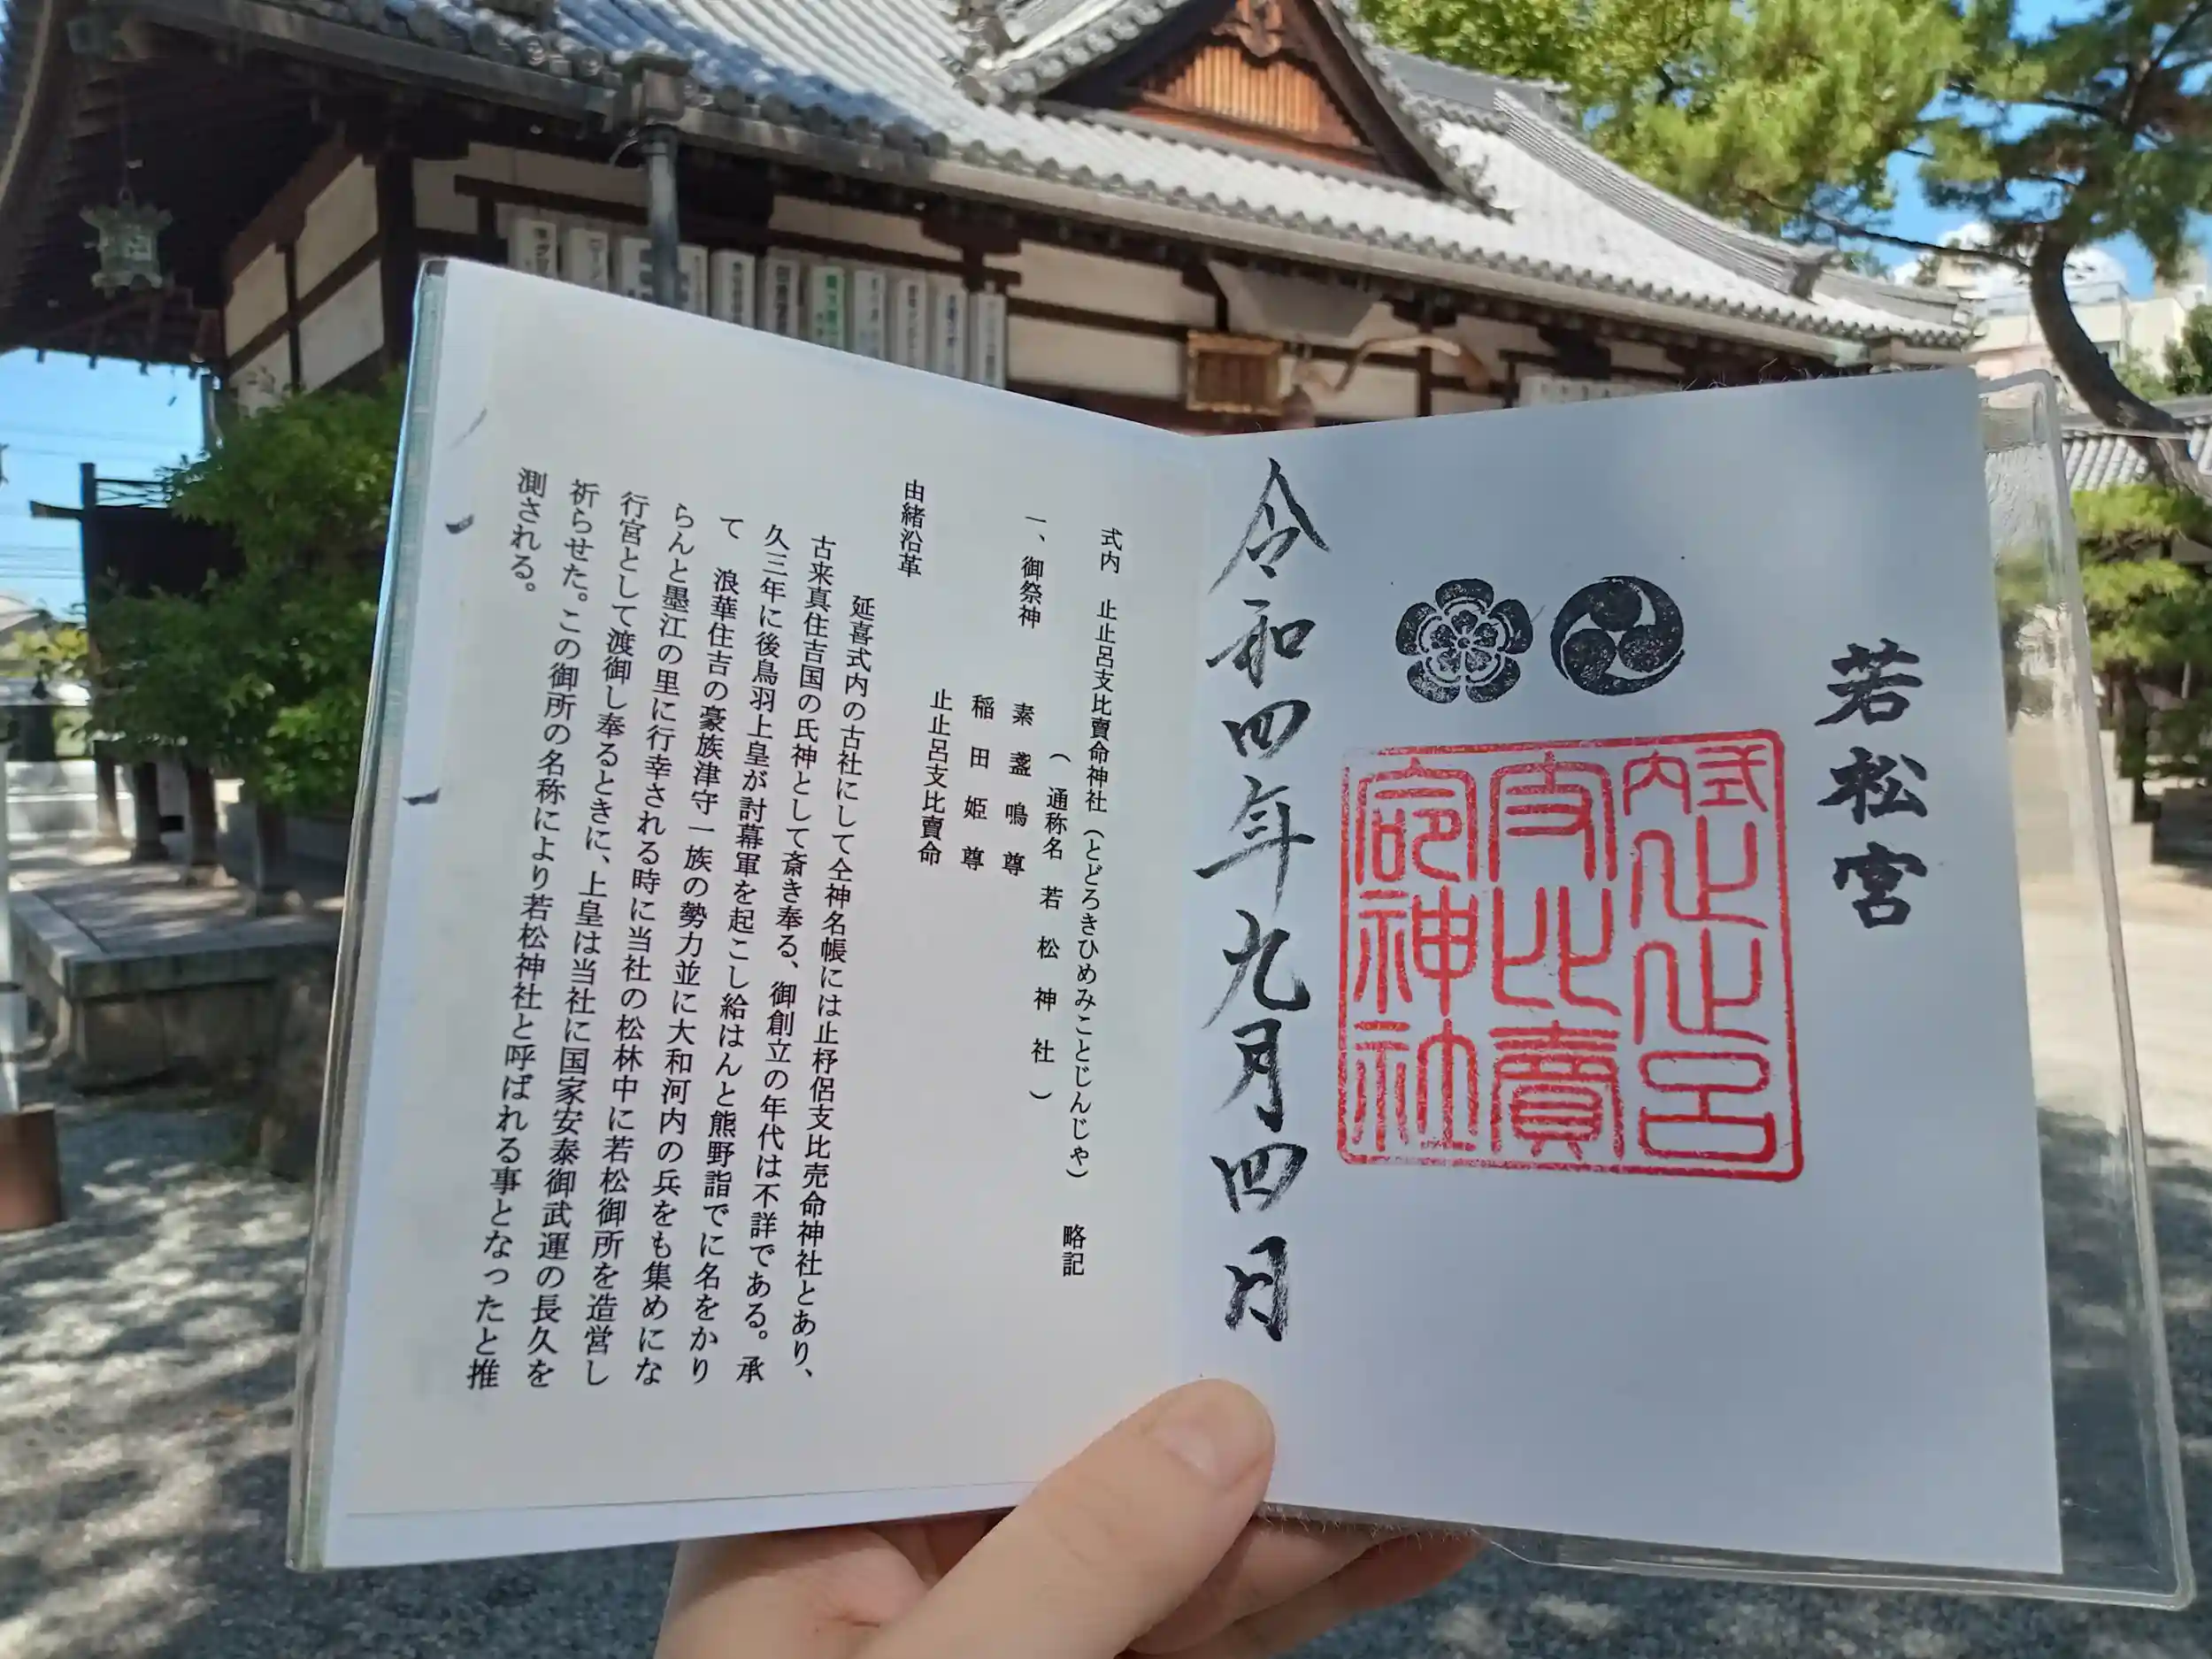 若松宮
式内止止呂
支比賣
命神社
令和四年九月四日
式内 止止呂支比賣命神社(とどろきひめみことじんじゃ) 略記
(通称名 若松神社)
一、御祭神 素盞鳴尊
稲田姫尊
止止呂支比賣命
由緒沿革
延喜式内の古社にして仝神名帳には止杼侶支比売命神社とあり、
古来真住吉国の氏神として斎き奉る、御創立の年代は不詳である。承
久三年に後鳥羽上皇が討幕軍を起こし給はんと熊野詣でに名をかり
て 浪華住吉の豪族津守一族の勢力並に大和河内の兵をも集めにな
らんと墨江の里に行幸される時に当社の松林中に若松御所を造営し
行宮として渡御し奉るときに、上皇は当社に国家安泰御武運の長久を
祈らせた。この御所の名称により若松神社と呼ばれる事となったと推
測される。